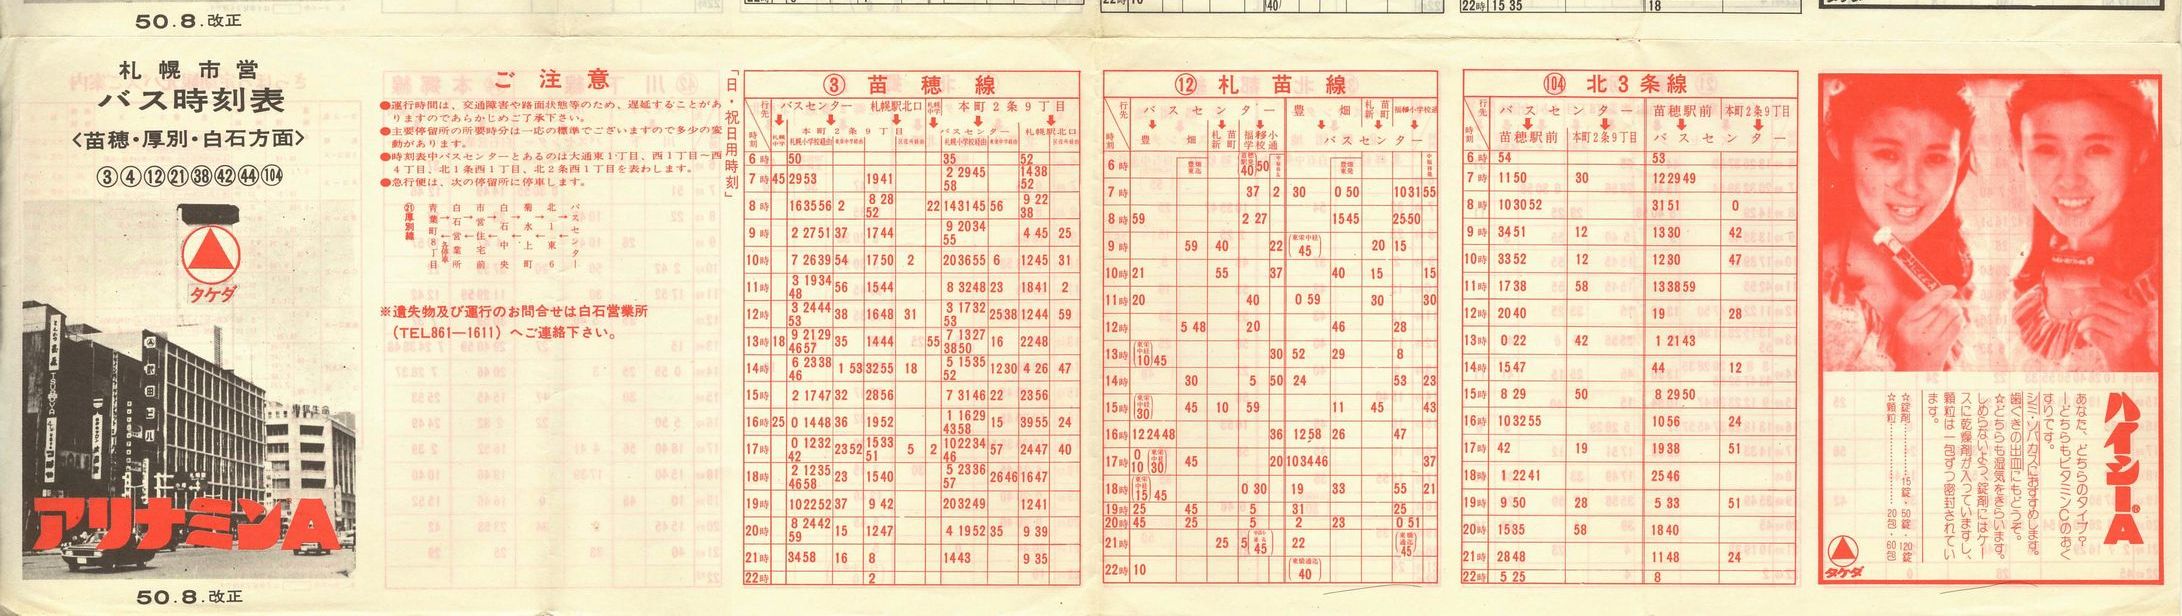 50.8.改正
22時 15 35
18
札幌市営
バス時刻表
<苗穂・厚別・白石方面>
③④⑫㉑㊳㊷㊹(104)
タケダ
アリナミンA
50.8.改正
ご注意
●運行時間は、交通障害や路面状態等のため、遅延することがあ
りますのであらかじめご了承下さい。
●主要停留所の所要時分は一応の標準でございますので多少の変
動があります。
●時刻表中バスセンターとあるのは大通東1丁目、西1丁目〜西
4丁目、北1条西1丁目、北2条西1丁目を表わします。
●急行便は、次の停留所に停車します。
㉑厚別線
※遺失物及び運行のお問合せは白石営業所
(TEL861—1611)へご連絡下さい。
「日・祝日用時刻」
③ 苗穂線
行先 時刻
バスセンター 札幌駅北口 本町2条9丁目
本町2条9丁目 バスセンター 札幌駅北口
6時 50 35 52
7時 45 29 53 19 41 2 29 45 58 14 38 52
8時 16 35 56 2 8 28 52 22 14 31 45 56 9 22 38
9時 2 27 51 37 17 44 9 20 34 55 4 45 25
10時 7 26 39 54 17 50 2 20 36 55 6 12 45 31
11時 3 19 34 48 56 15 44 8 32 48 23 18 41 2
12時 3 24 44 53 38 16 48 31 3 17 32 53 25 38 12 44 59
13時 18 9 21 29 46 57 35 14 44 25 55 7 13 27 38 50 16 22 48
14時 6 23 38 46 1 53 32 55 18 5 15 35 52 12 30 4 26 47
15時 2 17 47 32 28 56 7 31 46 22 23 56
16時 25 0 14 48 36 19 52 1 16 29 43 58 15 39 55 24
17時 0 12 32 42 23 52 15 33 51 5 2 10 22 34 46 57 24 47 40
18時 2 12 35 46 58 23 15 40 5 23 36 57 26 46 16 47
19時 10 22 52 37 9 42 20 32 49 12 41
20時 8 24 42 59 15 12 47 4 19 52 35 9 39
21時 34 58 16 8 14 43 9 35
22時 2
⑫ 札苗線
行先 時刻
バスセンター 豊畑 札苗新町 福移小学校通
豊畑 札苗新町 福移小学校通 バスセンター
6時 40 50
7時 37 2 30 0 50 10 31 55
8時 59 2 27 15 45 25 50
9時 59 40 22 45 20 15
10時 21 55 37 40 15 15
11時 20 40 0 59 30 30
12時 5 48 20 46 28
13時 10 45 30 52 29 8
14時 30 5 50 24 53 23
15時 30 45 10 59 11 45 43
16時 12 24 48 36 12 58 26 47
17時 0 10 30 45 20 10 34 46 37
18時 15 45 0 30 19 33 55 21
19時 25 45 5 31 25
20時 45 25 5 2 23 0 51
21時 25 5 45 22 45
22時 10 40
(104) 北3条線
行先 時刻
バスセンター 苗穂駅前 本町2条9丁目
苗穂駅前 本町2条9丁目 バスセンター
6時 54 53
7時 11 50 30 12 29 49
8時 10 30 52 31 51 0
9時 34 51 12 13 30 42
10時 33 52 12 12 30 47
11時 17 38 58 13 38 59
12時 20 40 19 28
13時 0 22 42 1 21 43
14時 15 47 44 12
15時 8 29 50 8 29 50
16時 10 32 55 10 56 24
17時 42 19 19 38 51
18時 1 22 41 25 46
19時 9 50 28 5 33 51
20時 15 35 58 18 40
21時 28 48 11 48 24
22時 5 25 8
ハイシーA®
あなた、どちらのタイプ?
―どちらもビタミンCのおく
すりです。
シミ・ソバカスにおすすめします。
歯ぐきの出血にもどうぞ。
☆どちらも湿気をきらいます。
しめらないよう、錠剤にはケー
スに乾燥剤が入っていますし、
顆粒は一包ずつ密封されてい
ます。
☆錠剤……15錠・50錠・120錠
☆顆粒……20包・60包
タケダ